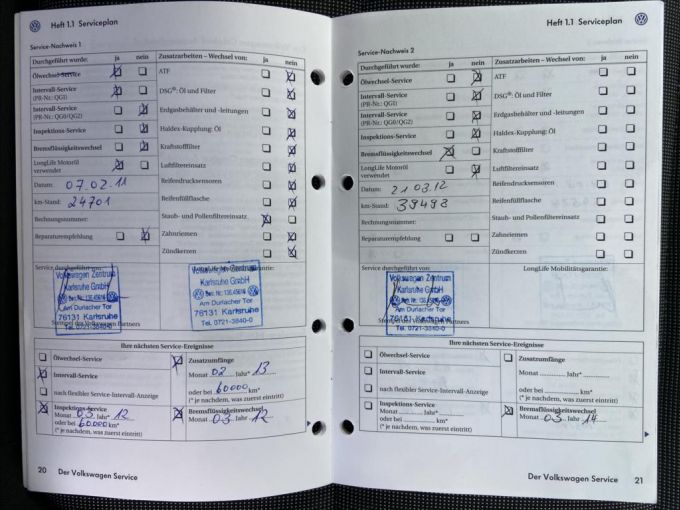 Heft 1.1 Serviceplan
Service-Nachweis 1
Durchgeführt wurde: ja nein Zusatzarbeiten – Wechsel von: ja nein
Ölwechsel-Service ATF
Intervall-Service DSG®: Öl und Filter
(PR-Nr.: QG1)
Intervall-Service Erdgasbehälter und -leitungen
(PR-Nr.: QG0/QG2)
Inspektions-Service Haldex-Kupplung: Öl
Bremsflüssigkeitswechsel Kraftstofffilter
LongLife Motoröl Luftfiltereinsatz
verwendet
Datum: 07.02.11 Reifendrucksensoren
km-Stand: 24701 Reifenfüllflasche
Rechnungsnummer: Staub- und Pollenfiltereinsatz
Reparaturempfehlung Zahnriemen
Zündkerzen
Service durchgeführt von:
Volkswagen Zentrum Volkswagen Zentrum
Karlsruhe GmbH Karlsruhe GmbH
Am Durlacher Tor Am Durlacher Tor
76131 Karlsruhe 76131 Karlsruhe
Tel. 0721-3840-0 Tel. 0721-3840-0
Stempel des Volkswagen Partners
Ihre nächsten Service-Ereignisse
Ölwechsel-Service Zusatzumfänge
Intervall-Service Monat 02 Jahr* 13
nach flexibler Service-Intervall-Anzeige oder bei 60000 km*
(* je nachdem, was zuerst eintritt)
Inspektions-Service Bremsflüssigkeitswechsel
Monat 03 Jahr* 12 Monat 03 Jahr 12
oder bei 60000 km*
(* je nachdem, was zuerst eintritt)
20 Der Volkswagen Service
Heft 1.1 Serviceplan
Service-Nachweis 2
Durchgeführt wurde: ja nein Zusatzarbeiten – Wechsel von: ja nein
Ölwechsel-Service ATF
Intervall-Service DSG®: Öl und Filter
(PR-Nr.: QG1)
Intervall-Service Erdgasbehälter und -leitungen
(PR-Nr.: QG0/QG2)
Inspektions-Service Haldex-Kupplung: Öl
Bremsflüssigkeitswechsel Kraftstofffilter
LongLife Motoröl Luftfiltereinsatz
verwendet
Datum: 21.03.12 Reifendrucksensoren
km-Stand: 39498 Reifenfüllflasche
Rechnungsnummer: Staub- und Pollenfiltereinsatz
Reparaturempfehlung Zahnriemen
Zündkerzen
Service durchgeführt von: LongLife Mobilitätsgarantie:
Volkswagen Zentrum
Karlsruhe GmbH
Am Durlacher Tor
76131 Karlsruhe
Tel. 0721-3840-0
Stempel des Volkswagen Partners
Ihre nächsten Service-Ereignisse
Ölwechsel-Service Zusatzumfänge
Intervall-Service Monat Jahr*
nach flexibler Service-Intervall-Anzeige oder bei km*
(* je nachdem, was zuerst eintritt)
Inspektions-Service Bremsflüssigkeitswechsel
Monat Jahr* Monat 03 Jahr 14
oder bei km*
(* je nachdem, was zuerst eintritt)
Der Volkswagen Service 21